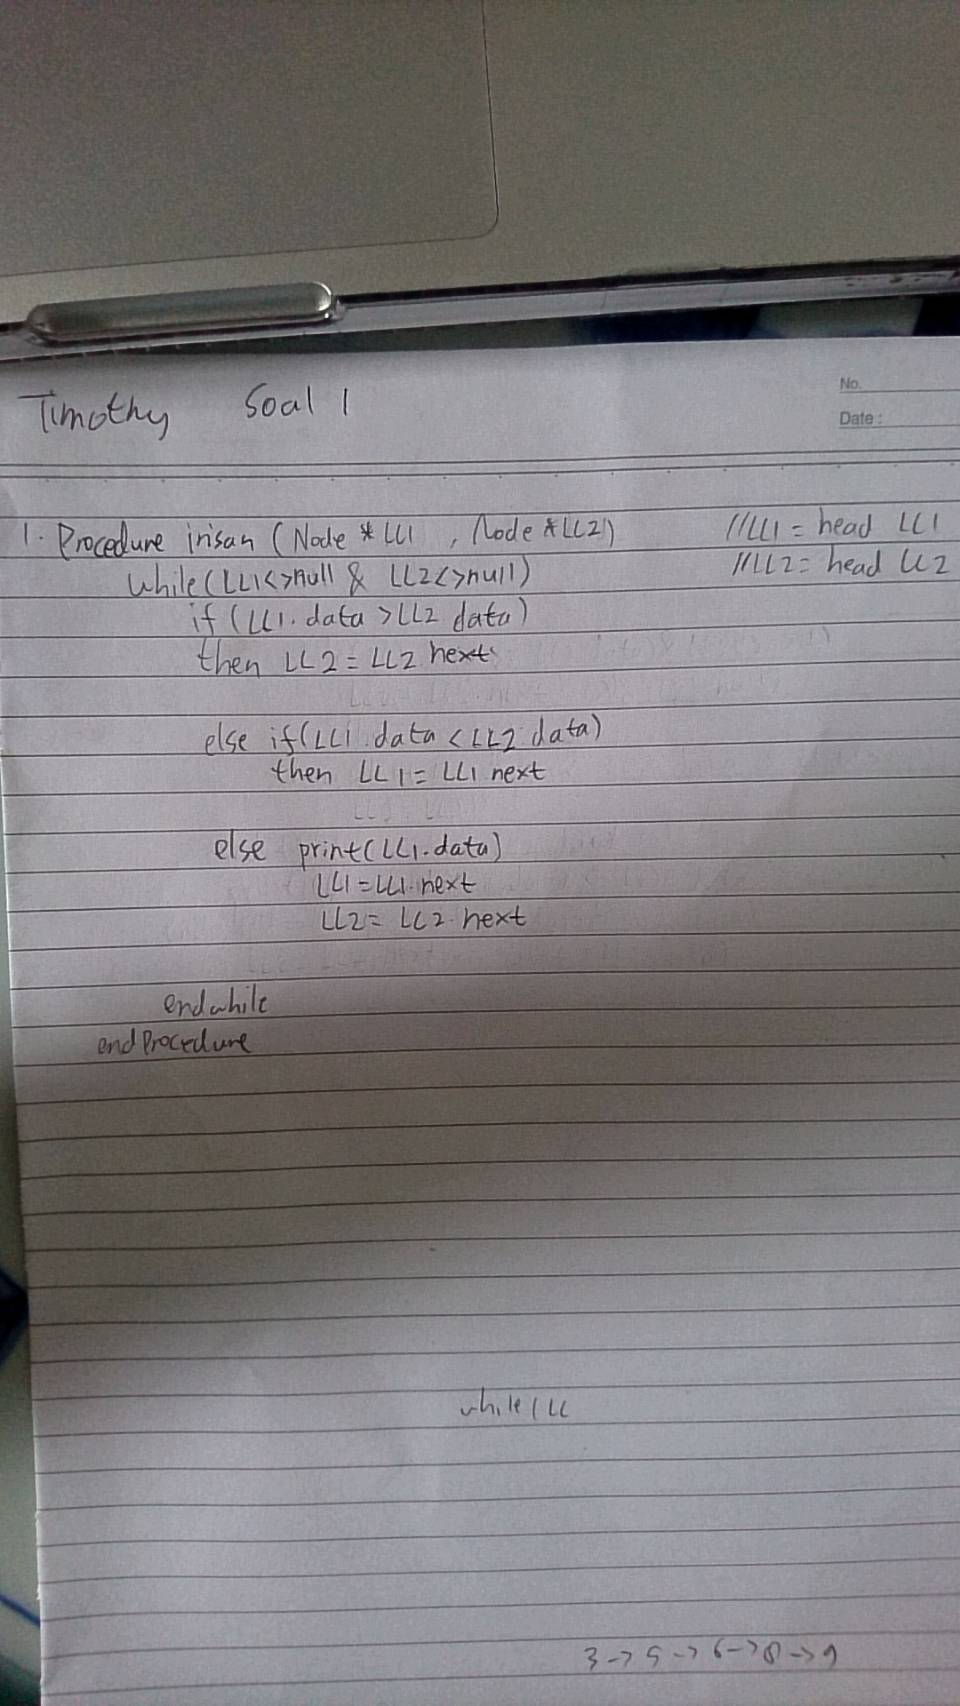 Timothy Soal 1
No.
Date :
1. Procedure irisan (Node * LL1 , Node * LL2) //LL1 = head LL1
while (LL1<>null & LL2<>null) //LL2 = head LL2
if (LL1.data > LL2 data)
then LL2 = LL2 next
else if (LL1.data < LL2 data)
then LL1 = LL1 next
else print(LL1.data)
LL1 = LL1.next
LL2 = LL2.next
endwhile
end Procedure
while ( LL
3 -> 5 -> 6 -> 8 -> 9